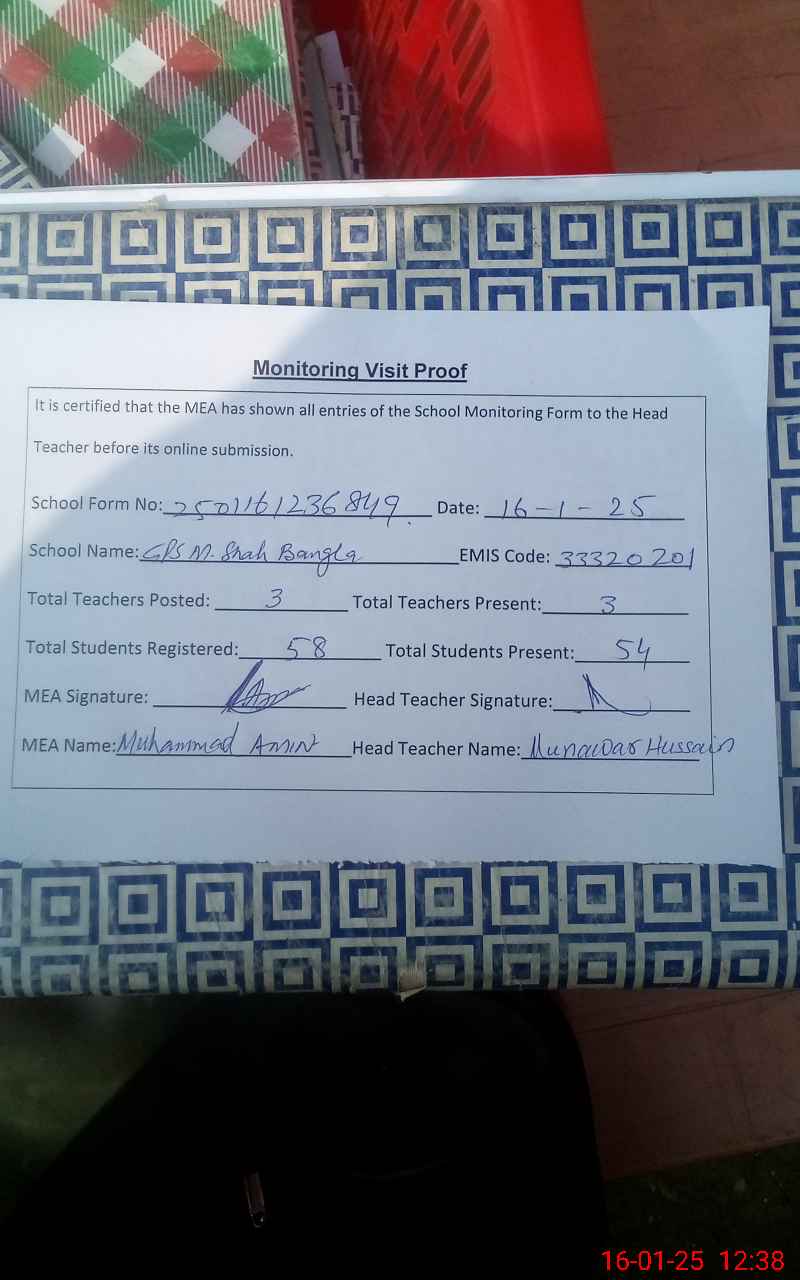 Monitoring Visit Proof
It is certified that the MEA has shown all entries of the School Monitoring Form to the Head
Teacher before its online submission.
School Form No: 2501161236849 Date: 16-1-25
School Name: GPS M. Shah Bangla EMIS Code: 33320201
Total Teachers Posted: 3 Total Teachers Present: 3
Total Students Registered: 58 Total Students Present: 54
MEA Signature: Head Teacher Signature:
MEA Name: Muhammad Amin Head Teacher Name: Munawar Hussain
16-01-25 12:38